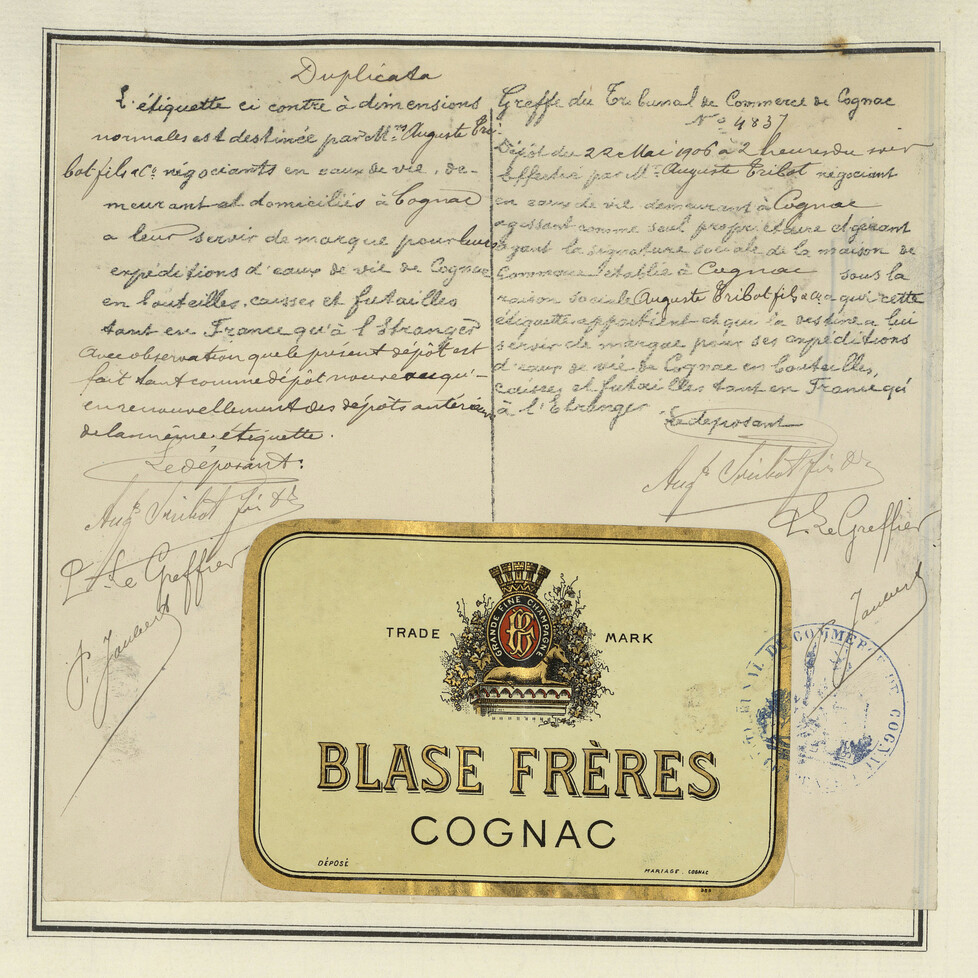 Duplicata
L'étiquette ci contre à dimensions
normales est destinée par Mrs Auguste Tri-
bot fils & Ce négociants en eaux de vie, de-
meurant et domiciliés à Cognac
a leur servir de marque pour leurs
expéditions d'eaux de vie de Cognac
en bouteilles, caisses et futailles
tant en France qu'à l'Etranger
Avec observation que le présent dépôt est
fait tant comme dépôt nouveau qu'-
en renouvellement des dépôts antérieurs
de la même étiquette.
Le déposant:
Augte Tribot fils & Ce
P. Le Greffier
P. Jaubert
Greffe du Tribunal de Commerce de Cognac
No 4837
Dépôt du 22 Mai 1906 à 2 heures du soir
Effectué par Mr Auguste Tribot négociant
en eaux de vie demeurant à Cognac
agissant comme seul propriétaire et gérant
ayant la signature sociale de la maison de
Commerce établie à Cognac sous la
raison sociale Auguste Tribot fils & Ce a qui cette
étiquette appartient et qui la destine a lui
servir de marque pour ses expéditions
d'eaux de vie de Cognac en bouteilles,
caisses et futailles tant en France qu'
à l'Etranger
Le déposant
Augte Tribot fils & Ce
P. Le Greffier
Jaubert
GRANDE FINE CHAMPAGNE
TRADE MARK
BLASE FRÈRES
COGNAC
DÉPOSÉ
MARIAGE. COGNAC
TRIBUNAL DE COMMERCE DE COGNAC